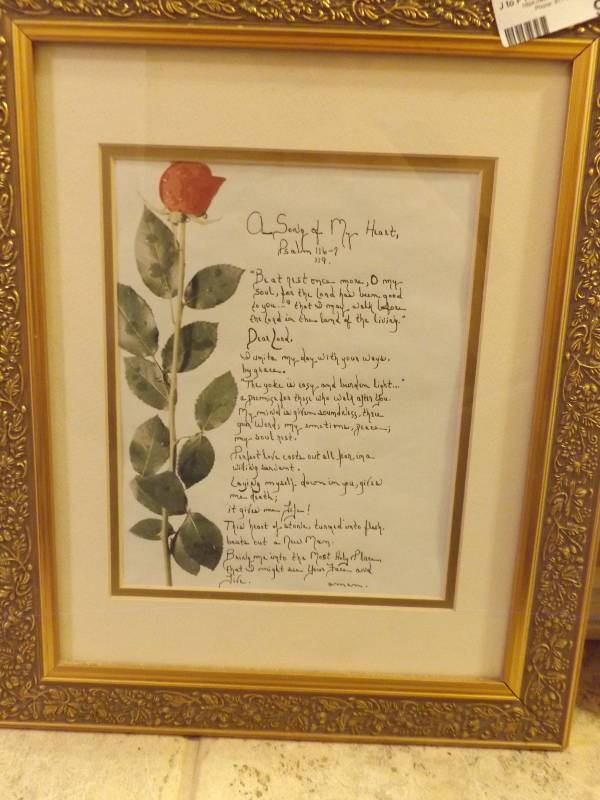 J to
Phone:
A Song of My Heart,
Psalm 116-7
119.
"Be at rest once more, O my
soul, for the Lord has been good
to you--" that I may walk before
the Lord in the land of the living."
Dear Lord,
I unite my day with your ways.
by grace.
"The yoke is easy and burden light..."
a promise for those who walk after you.
My mind is given soundness, thru
your Word; my emotions, peace;
my soul rest.
Perfect love casts out all fear, in a
willing servant.
Laying myself down in you, gives
me death;
it gives me Life!
This heart of stone, turned into flesh,
beats out a New Man.
Bring me into the Most Holy Place
that I might see Your Face and
Live.
amen.